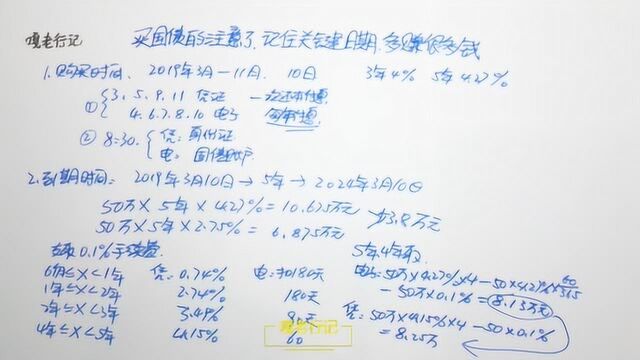 嘎老行记
买国债的注意了,记住关键日期,多赚很多钱
1.购买时间、 2019年3月—11月、 10日 3年4% 5年4.27%
① 3、5、9、11 凭证 一次还本付息
4、6、7、8、10 电子 每年付息
② 8:30 凭: 身份证
电: 国债账户
2.到期时间: 2019年3月10日→5年→2024年3月10日
50万×5年×4.27%=10.675万元
50万×5年×2.75%=6.875万元 少3.8万元
支取0.1%手续费 5年4年取
6个月≤X<1年 凭: 0.74% 电:扣180天
1年≤X<2年 2.74% 180天
2年≤X<3年 3.49% 90天
4年≤X<5年 4.15% 60
电子: 50万×4.27%×4-50×4.27%×60/365
-50万×0.1%=8.13万元
凭: 50万×4.15%×4-50×0.1%
=8.25万
嘎老行记